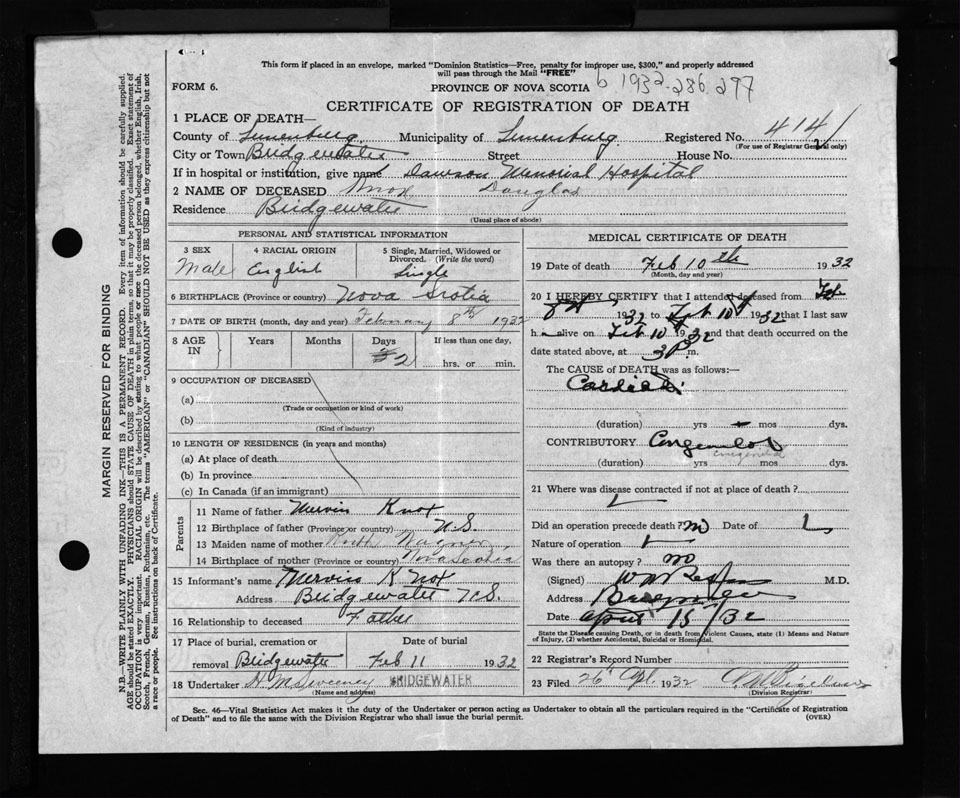 This form if placed in an envelope, marked "Dominion Statistics—Free, penalty for improper use, $300," and properly addressed
will pass through the Mail "FREE"
FORM 6.
PROVINCE OF NOVA SCOTIA
6 1932-286-297
CERTIFICATE OF REGISTRATION OF DEATH
1 PLACE OF DEATH—
County of Lunenburg Municipality of Lunenburg Registered No. 414
(For use of Registrar General only)
City or Town Bridgewater Street House No.
If in hospital or institution, give name Dawson Memorial Hospital
2 NAME OF DECEASED Knox Douglas
Residence Bridgewater
(Usual place of abode)
PERSONAL AND STATISTICAL INFORMATION
3 SEX 4 RACIAL ORIGIN 5 Single, Married, Widowed or Divorced. (Write the word)
Male English Single
6 BIRTHPLACE (Province or country) Nova Scotia
7 DATE OF BIRTH (month, day and year) February 8th 1932
8 AGE IN Years Months Days If less than one day,
2 hrs. or min.
9 OCCUPATION OF DECEASED
(a)
(Trade or occupation or kind of work)
(b)
(Kind of industry)
10 LENGTH OF RESIDENCE (in years and months)
(a) At place of death
(b) In province
(c) In Canada (if an immigrant)
Parents
11 Name of father Mervin Knox
12 Birthplace of father (Province or country) N.S.
13 Maiden name of mother Wagner
14 Birthplace of mother (Province or country) Nova Scotia
15 Informant's name Knox
Address Bridgewater N.S.
16 Relationship to deceased Father
17 Place of burial, cremation or Date of burial
removal Bridgewater Feb 11 1932
18 Undertaker H. McSweeney BRIDGEWATER
(Name and address)
MEDICAL CERTIFICATE OF DEATH
19 Date of death Feb 10th 1932
(Month, day and year)
20 I HEREBY CERTIFY that I attended deceased from Feb
8th 1932 to Feb 10th 1932 that I last saw
h alive on Feb 10th 1932 and that death occurred on
date stated above, at 3 P. m.
The CAUSE of DEATH was as follows:—
Cardiac
(duration) yrs mos dys.
CONTRIBUTORY Congenital
congenital
(duration) yrs mos dys.
21 Where was disease contracted if not at place of death?
Did an operation precede death? no Date of
Nature of operation
Was there an autopsy? no
(Signed) M.D.
Address
Date April 15/32
State the Disease causing Death, or in death from Violent Causes, state (1) Means and Nature
of Injury, (2) whether Accidental, Suicidal or Homicidal.
22 Registrar's Record Number
23 Filed 26 Apl. 1932
(Division Registrar)
Sec. 46—Vital Statistics Act makes it the duty of the Undertaker or person acting as Undertaker to obtain all the particulars required in the "Certificate of Registration
of Death" and to file the same with the Division Registrar who shall issue the burial permit.
(OVER)
MARGIN RESERVED FOR BINDING
N.B.—WRITE PLAINLY WITH UNFADING INK—THIS IS A PERMANENT RECORD. Every item of information should be carefully supplied.
AGE should be stated EXACTLY. PHYSICIANS should STATE CAUSE OF DEATH in plain terms so that it may be properly classified. Exact statement of
OCCUPATION is very important. RACIAL ORIGIN will be described by stating to what people or race the deceased person belonged, whether English, Irish,
Scotch, French, German, Russian, Ruthenian, etc. The terms "AMERICAN" or "CANADIAN" SHOULD NOT BE USED as they express citizenship but not
a race or people. See instructions on back of Certificate.